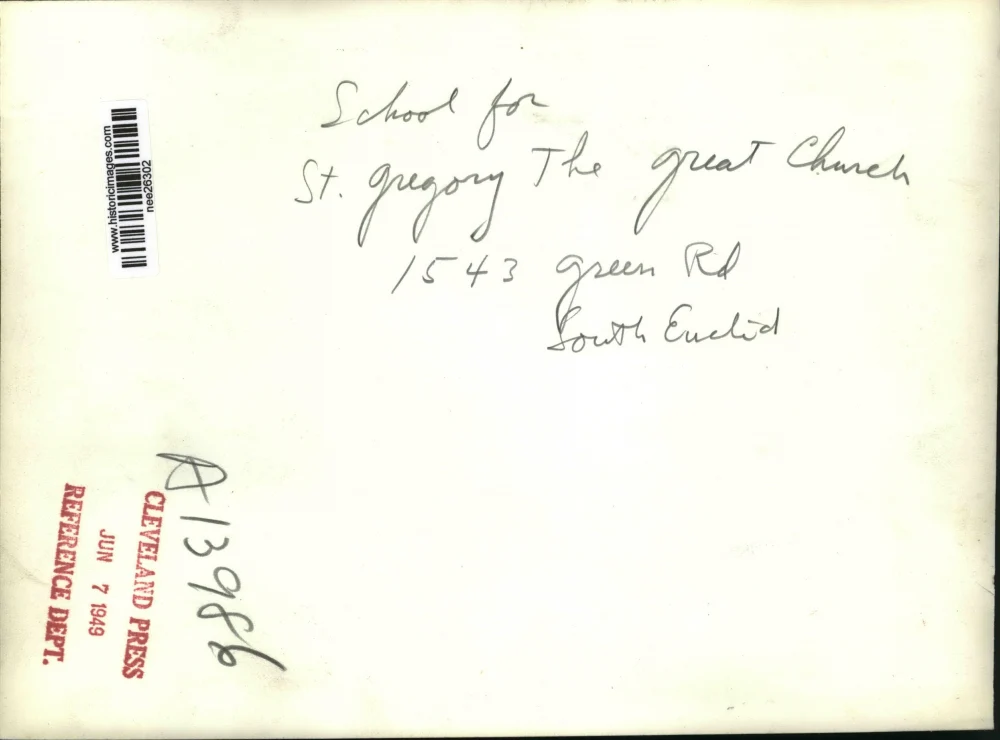 School for
St. Gregory The Great Church
1543 Green Rd
South Euclid
www.historicimages.com
nee26302
A13986
CLEVELAND PRESS
JUN 7 1949
REFERENCE DEPT.